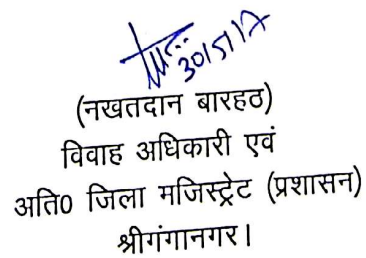 30/5/17
(नखतदान बारहठ)
विवाह अधिकारी एवं
अति0 जिला मजिस्ट्रेट (प्रशासन)
श्रीगंगानगर।